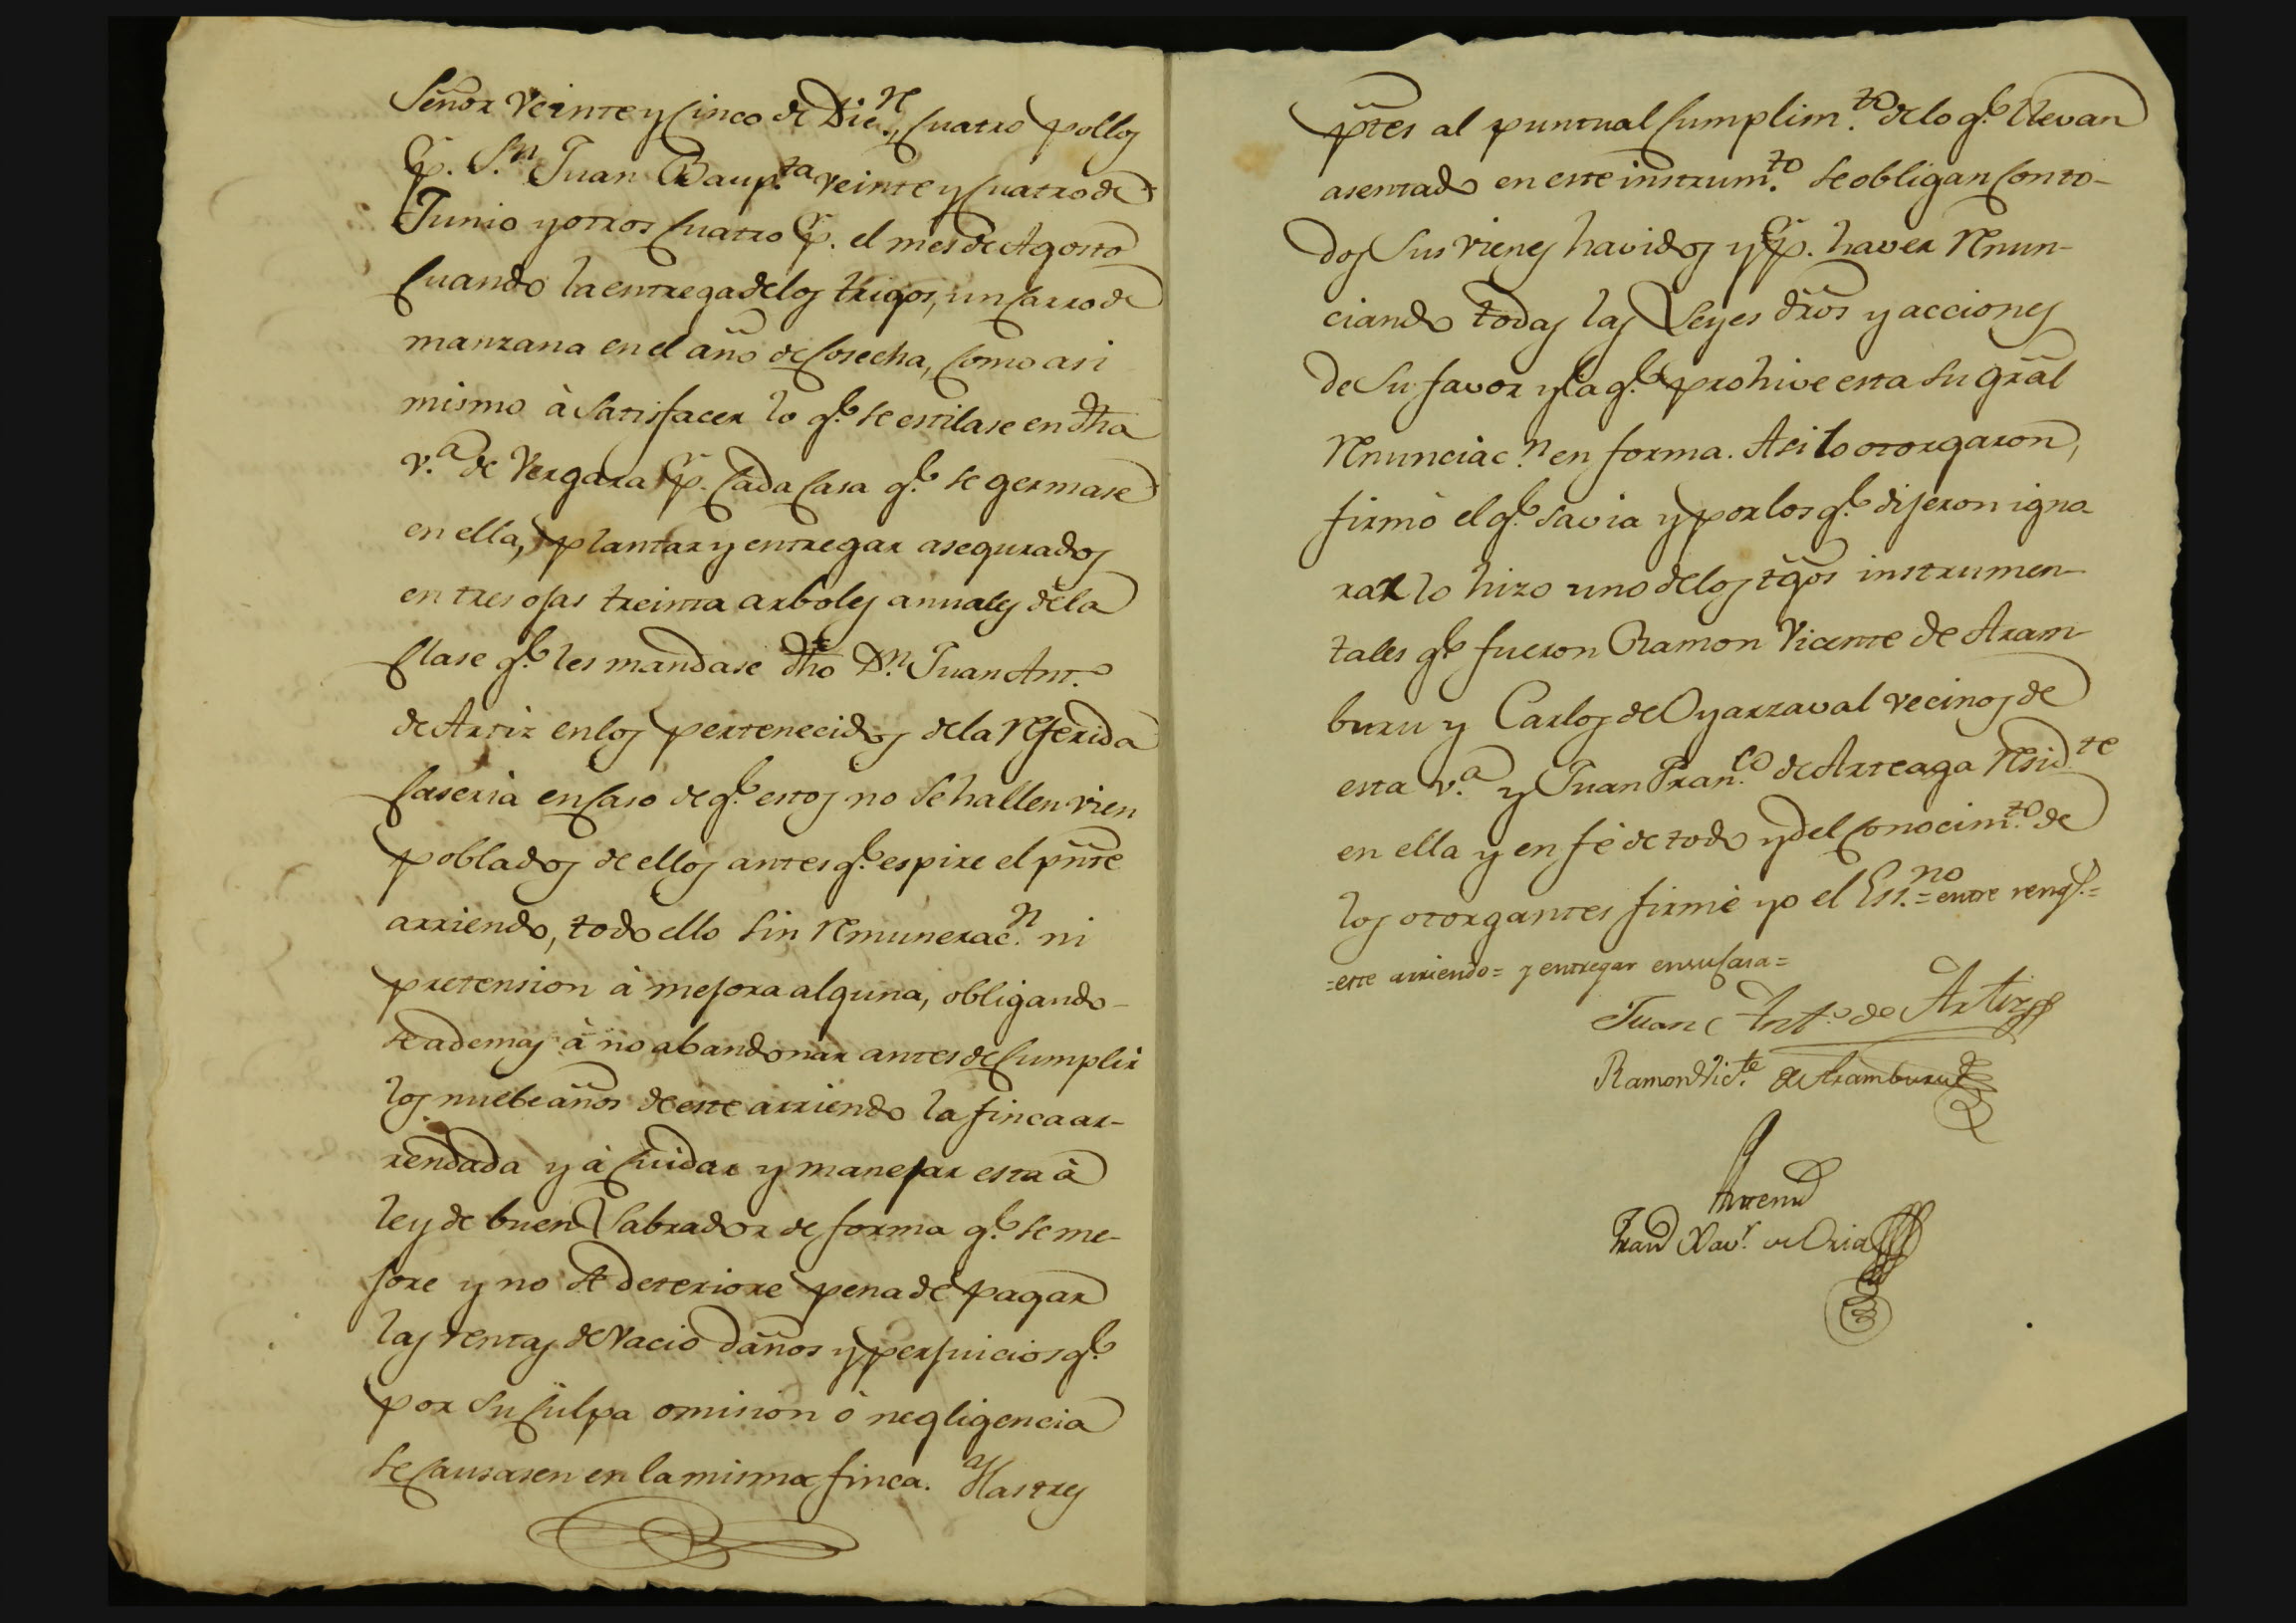 Señor veinte y cinco de Dic.re, cuatro pollos
p.r S.n Juan Baup.ta veinte y cuatro de
Junio y otros cuatro p.r el mes de Agosto
cuando la entrega de los trigos, un carro de
manzana en el año de cosecha, como asi
mismo à satisfacer lo q.e se estilase en dha
v.a de Vergara p.r cada casa q.e se germase
en ella, plantar y entregar asegurados
en tres ojas treinta arboles anuales de la
clase q.e les mandase dho D.n Juan Ant.o
de Artiz en los pertenecidos de la referida
caseria en caso de q.e estos no se hallen vien
poblados de ellos antes q.e espire el pñte
arriendo, todo ello sin remunerac.n ni
pretension à mejora alguna, obligando-
se ademas à no abandonar antes de cumplir
los nuebe años de este arriendo la finca ar-
rendada y à cuidar y manejar esta à
ley de buen Labrador de forma q.e se me-
jore y no se deteriore pena de pagar
las rentas de vacio daños y perjuicios q.e
por su culpa omision ò negligencia
se causasen en la misma finca. Y las tres
ptes al puntual cumplim.to de lo q.e llevan
asentado en este instrum.to se obligan con to-
dos sus vienes havidos y p.r haver renun-
ciando todas las Leyes dros y acciones
de su favor y la q.e prohive esta su gral
renunciac.n en forma. Asi lo otorgaron,
firmò el q.e savia y por los q.e dijeron igno
rar lo hizo uno de los tgos instrumen-
tales q.e fueron Ramon Vicente de Aram-
buru y Carlos de Oyarzaval vecinos de
esta v.a y Juan Fran.co de Arteaga resid.te
en ella y en fé de todo y del conocim.to de
los otorgantes firmé yo el Ess.no = entre rengs.=
=este arriendo= y entregar en su casa=
Juan Ant.o de Artiz
Ramon Vic.te de Aramburu
Antemi
Fran.co Xav.r de Oria